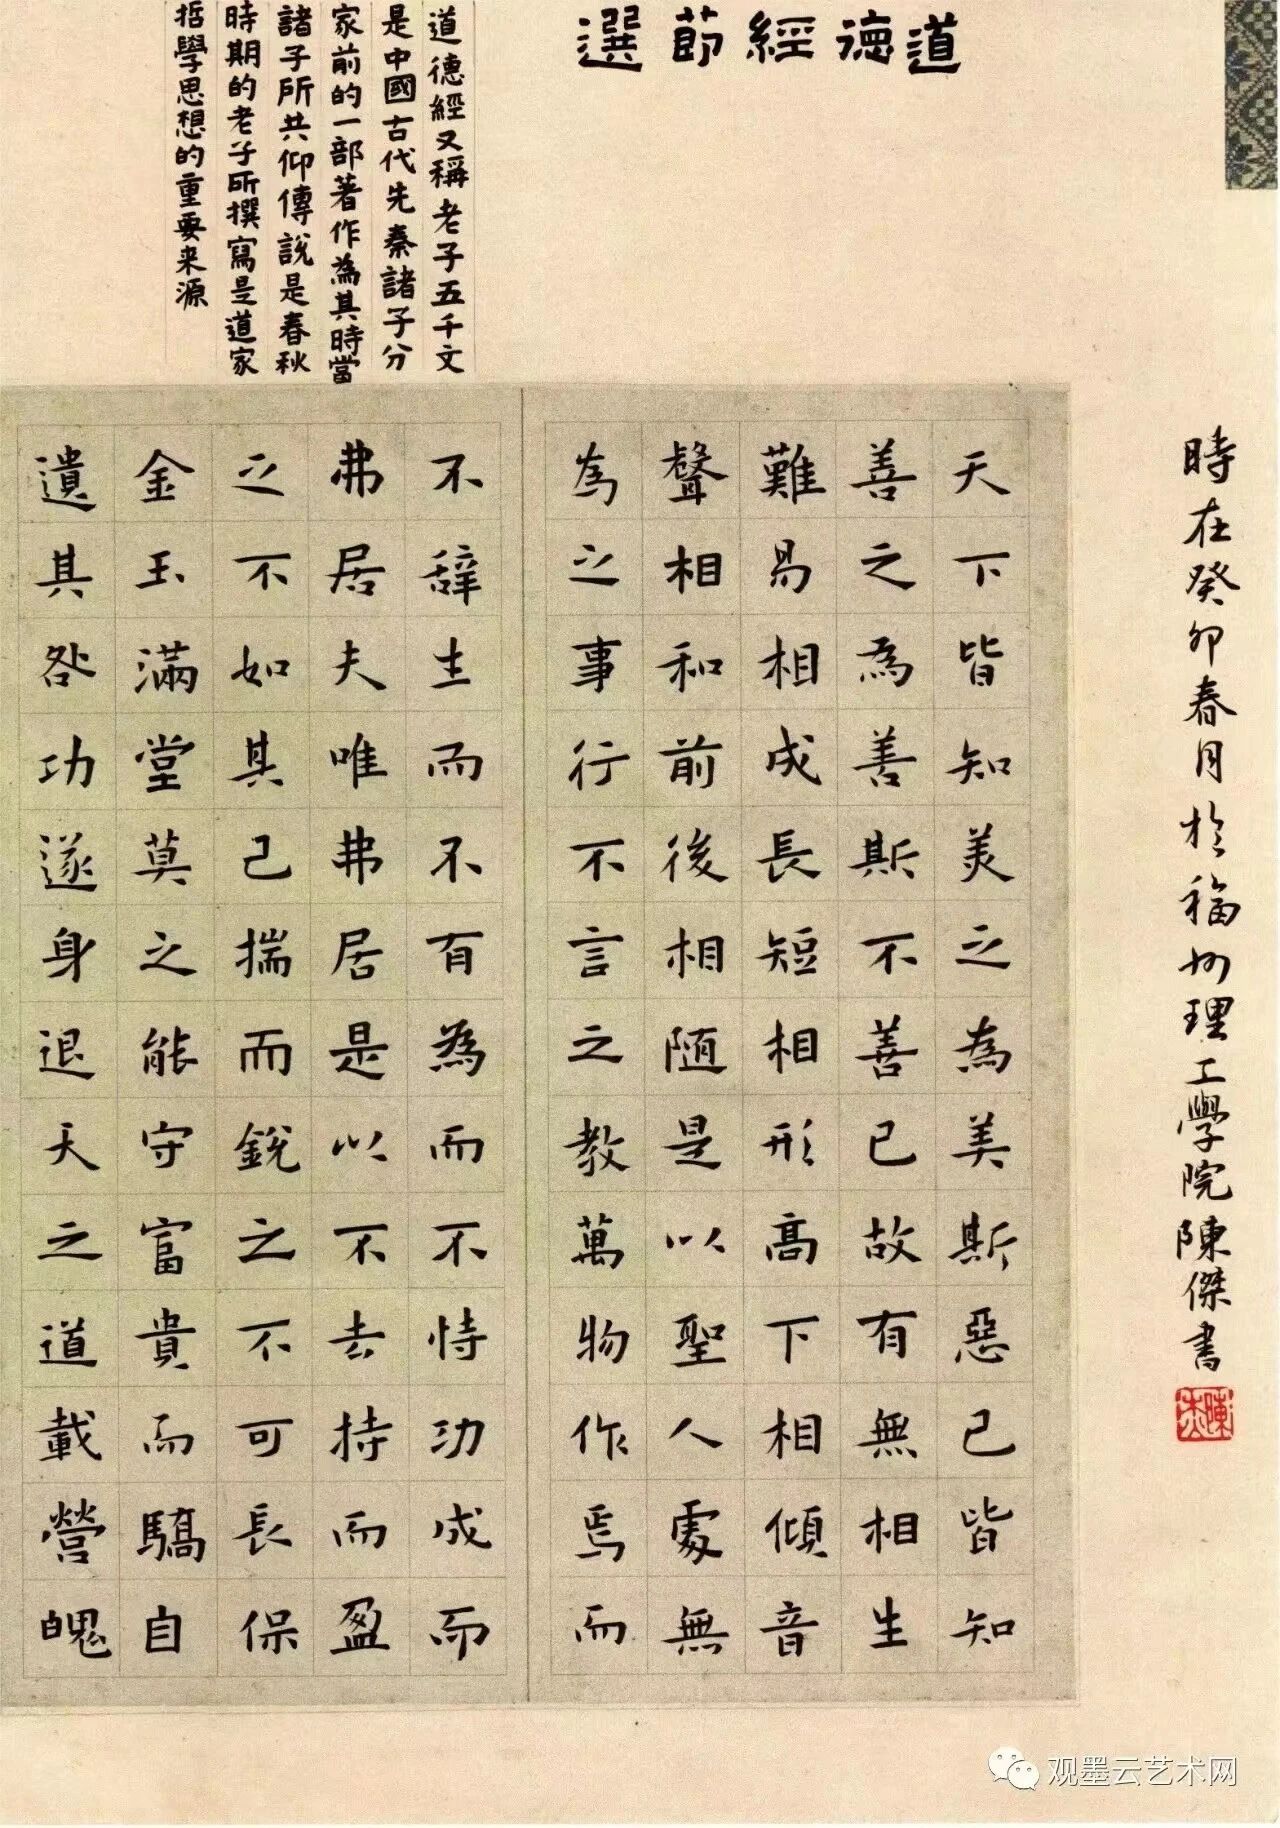 道德經節選
道德經又稱老子五千文
是中國古代先秦諸子分
家前的一部著作為其時當
諸子所共仰傳說是春秋
時期的老子所撰寫是道家
哲學思想的重要来源
時在癸卯春月於福州理工學院陳傑書
陳杰
天下皆知美之為美斯惡已皆知
善之為善斯不善已故有無相生
難易相成長短相形高下相傾音
聲相和前後相隨是以聖人處無
為之事行不言之教萬物作焉而
不辭生而不有為而不恃功成而
弗居夫唯弗居是以不去持而盈
之不如其己揣而銳之不可長保
金玉滿堂莫之能守富貴而驕自
遺其咎功遂身退天之道載營魄
观墨云艺术网